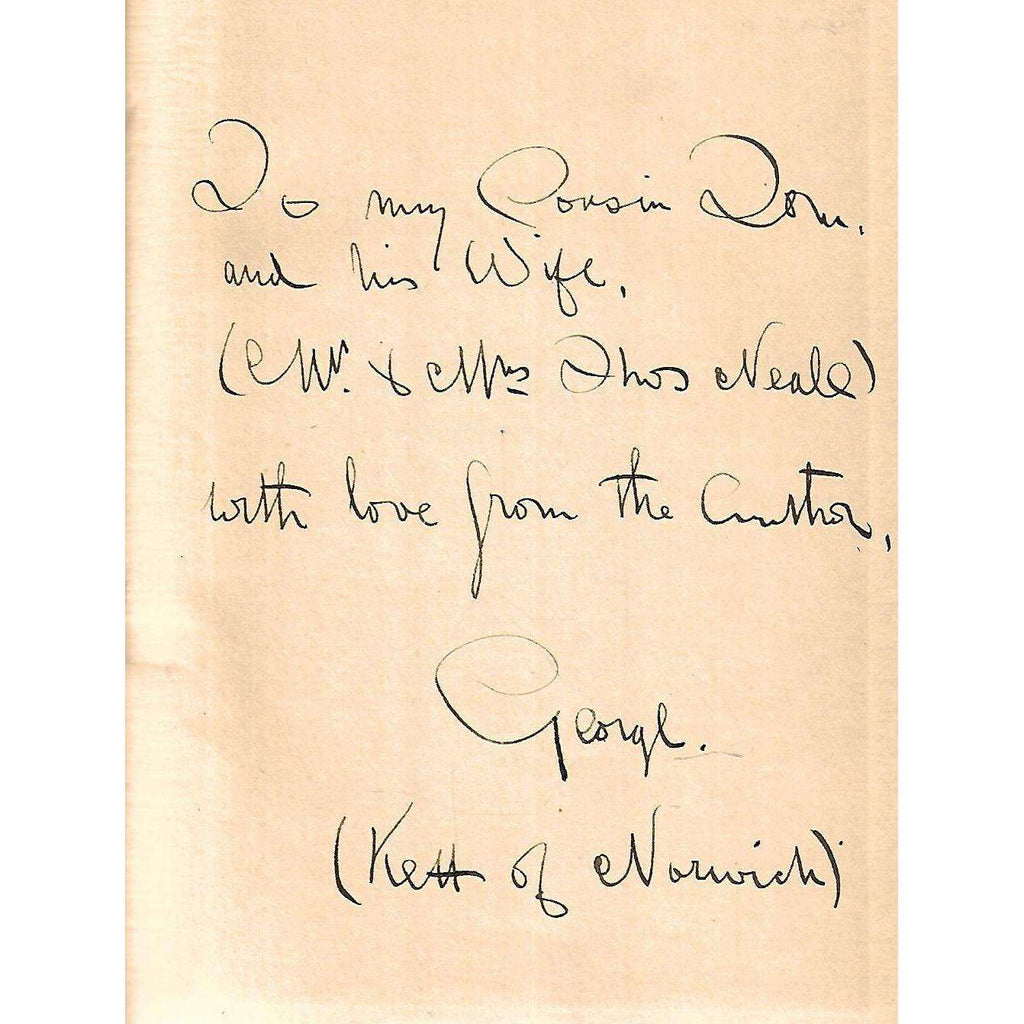 To my Cousin Tom,
and his Wife,
(Mr. & Mrs Thos Neale)
with love from the Author,
George.
(Kett of Norwich)